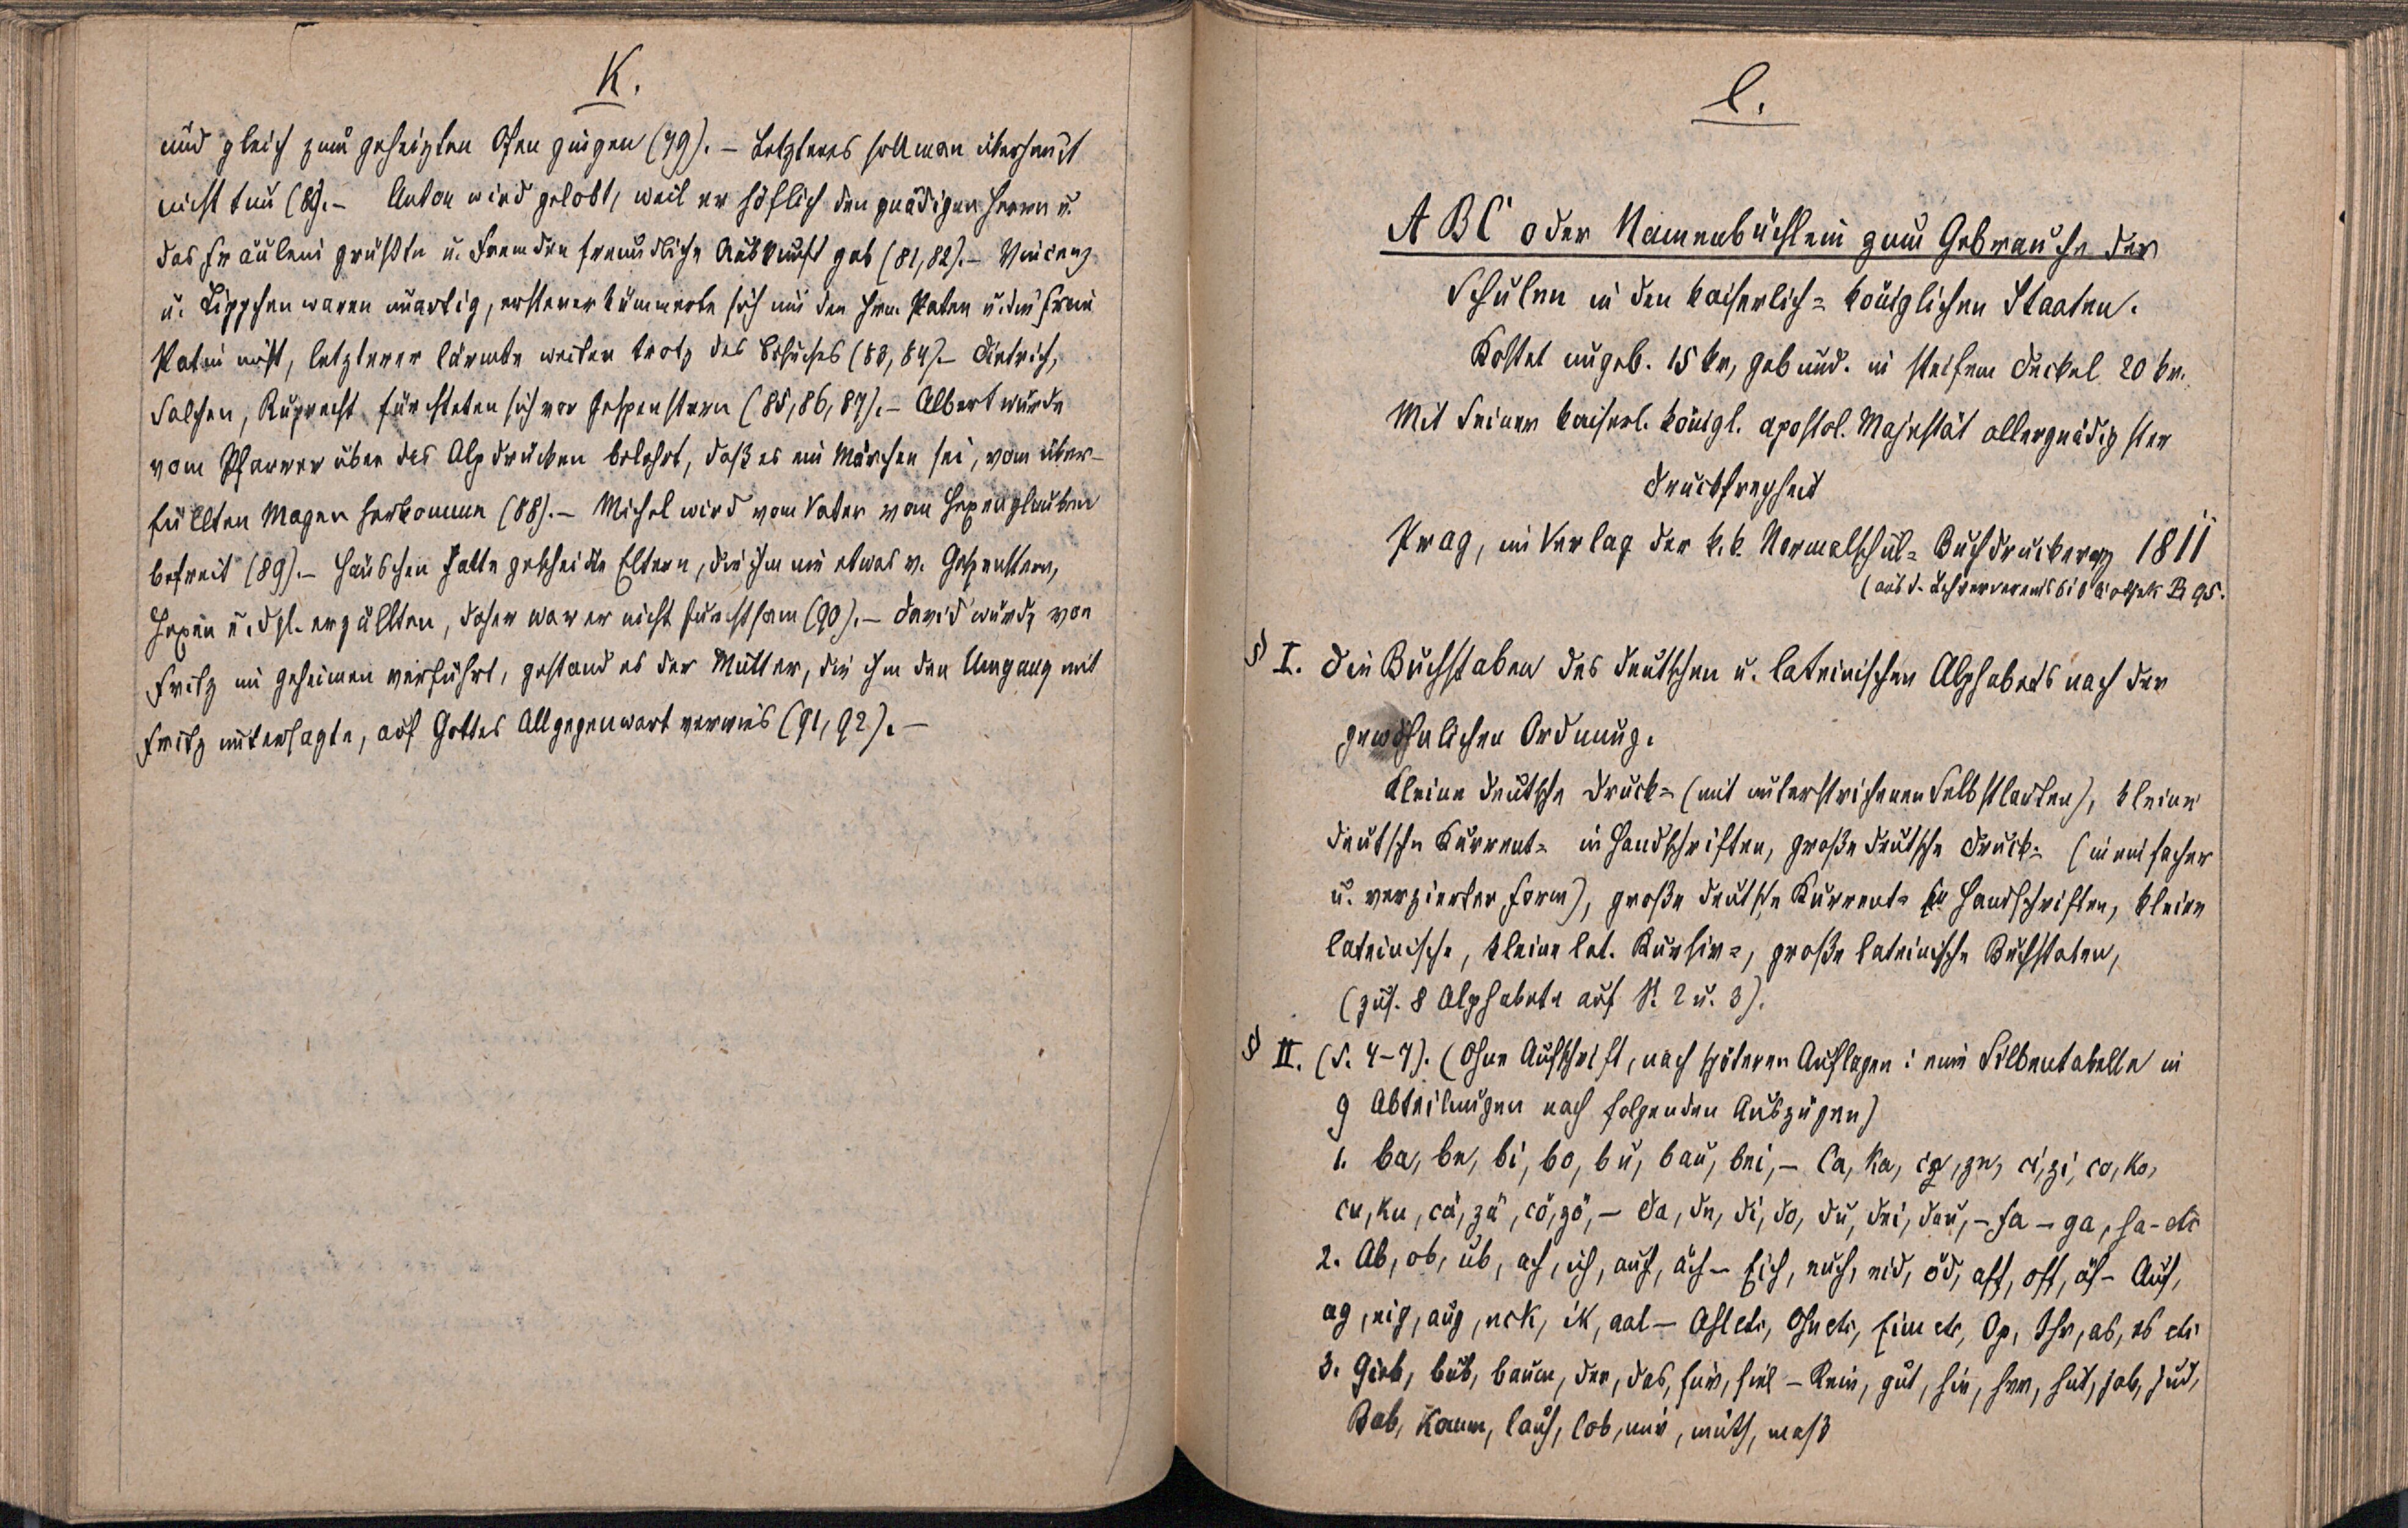 K.
und gleich zum geheizten Ofen gingen (79). – Letzteres soll man überhaupt
nicht tun (80). – Anton wird gelobt, weil er höflich den gnädigen Herrn u.
das Fräulein grüßte u. Fremden freundliche Auskunft gab (81, 82). – Vincenz
u. Lippchen waren unartig, ersterer kümmerte sich um den Hrn. Paten u. die Frau
Patin nicht, letzterer lärmte weiter trotz des Besuches (83, 84). – Dietrich,
Salchen, Ruprecht fürchteten sich vor Gespenstern (85, 86, 87). – Albert wurde
vom Pfarrer über das Alpdrücken belehrt, daß es ein Märchen sei, vom über-
füllten Magen herkomme (88). – Michel wird vom Vater vom Hexenglauben
befreit (89). – Hänschen hatte gescheidte Eltern, die ihm nie etwas v. Gespenstern,
Hexen u. dgl. erzählten, daher war er nicht furchtsam (90). – David wurde von
Fritz im geheimen verführt, gestand es der Mutter, die ihm den Umgang mit
Fritz untersagte, auf Gottes Allgegenwart verwies (91, 92). –
l.
ABC oder Namenbüchlein zum Gebrauche der
Schulen in den kaiserlich-königlichen Staaten.
Kostet ungeb. 15 kr, gebund. in steifem Deckel 20 kr.
Mit Seiner kaiserl. königl. apostol. Majestät allergnädigster
Druckfreyheit
Prag, im Verlag der k.k. Normalschul-Buchdruckerey 1811
(aus d. Lehrervereinsbibliothek B 95.
§ I. Die Buchstaben des deutschen u. lateinischen Alphabets nach der
gewöhnlichen Ordnung.
Kleine deutsche Druck- (mit unterstrichenen Selbstlauten), kleine
deutsche Kurrent- in Handschriften, große deutsche Druck- (in einfacher
u. verzierter Form), große deutsche Kurrent- Handschriften, kleine
lateinische, kleine lat. Kursiv-, große lateinische Buchstaben,
(zus. 8 Alphabete auf S. 2 u. 3).
§ II. (S. 4–7). (Ohne Aufschrift, nach späteren Auflagen: eine Silbentabelle in
9 Abteilungen nach folgenden Auszügen)
1. ba, be, bi, bo, bu, bau, bei, – Ca, ka, ce, ze, ci, zi, co, ko,
cu, ku, cä, zä, cö, zö, – da, de, di, do, du, dei, dau, – fa – ga, ha – etc
2. Ab, ob, ub, ach, ich, auch, äch – Eich, euch, eid, öd, aff, off, öf – Auf,
ag, eig, aug, eck, ik, aal – Ahl etc, Ohn etc, Eim etc, Op, Ihr, as, es etc
3. Gieb, bub, baum, der, das, für, fiel – Rein, gut, hin, her, hut, job, jud,
Bab, kaum, lauf, lob, mir, muth, maß